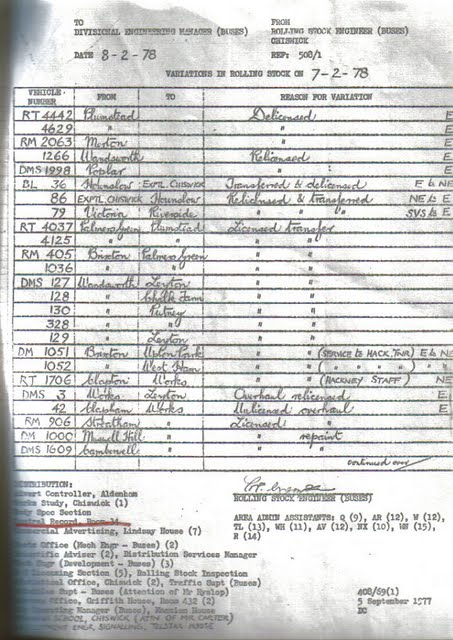 TO FROM
DIVISIONAL ENGINEERING MANAGER (BUSES) ROLLING STOCK ENGINEER (BUSES)
CHISWICK
DATE 8-2-78 REF: 508/1
VARIATIONS IN ROLLING STOCK ON 7-2-78
VEHICLE NUMBER FROM TO REASON FOR VARIATION
RT 4442 Plumstead Delicensed E
4629 " " E
RM 2063 Merton " E
1266 Wandsworth Relicensed E
DMS 1998 Poplar " E
BL 36 Hounslow EXPTL. CHISWICK Transferred & delicensed E to NE
86 EXPTL. CHISWICK Hounslow Relicensed & transferred NE to E
79 Victoria Riverside " " " SVS to E
RT 4037 Palmers Green Plumstead Licensed transfer
4125 " " " "
RM 405 Brixton Palmers Green " "
1036 " " " "
DMS 127 Wandsworth Leyton " "
128 " Chalk Farm " "
130 " Putney " "
328 " " " "
129 " Leyton " "
DM 1051 Brixton Upton Park " " (SERVICE to HACK. TNR) E to NE
1052 " West Ham " " ( " " " )
RT 1706 Clapton Works " " (HACKNEY STAFF) NE
DMS 3 Works Leyton Overhaul relicensed E
42 Clapham Works Unlicensed overhaul E
RM 906 Streatham " Licensed "
DM 1000 Muswell Hill " " repaint
DMS 1609 Camberwell " " "
continued over
DISTRIBUTION:
Advert Controller, Aldenham
Works Study, Chiswick (1)
Body Spec Section
Central Record, Room 34
Commercial Advertising, Lindsay House (7)
Office (Mech Engr - Buses) (2)
Scientific Adviser (2), Distribution Services Manager
Engr (Development - Buses) (3)
Licensing Section (5), Rolling Stock Inspection
Office, Chiswick (2), Traffic Supt (Buses)
Supplies Supt - Buses (Attention of Mr Hyslop)
Office, Griffith House, Room 432 (2)
Manager (Buses), Mansion House
SCHOOL, CHISWICK (ATTN OF MR CARTER)
ENGR, SIGNALLING, TELSTAR HOUSE
ROLLING STOCK ENGINEER (BUSES)
AREA ADMIN ASSISTANTS: Q (9), AR (12), W (12),
TL (13), WH (11), AV (12), NX (10), WN (15),
R (14)
408/69(1)
5 September 1977
DC